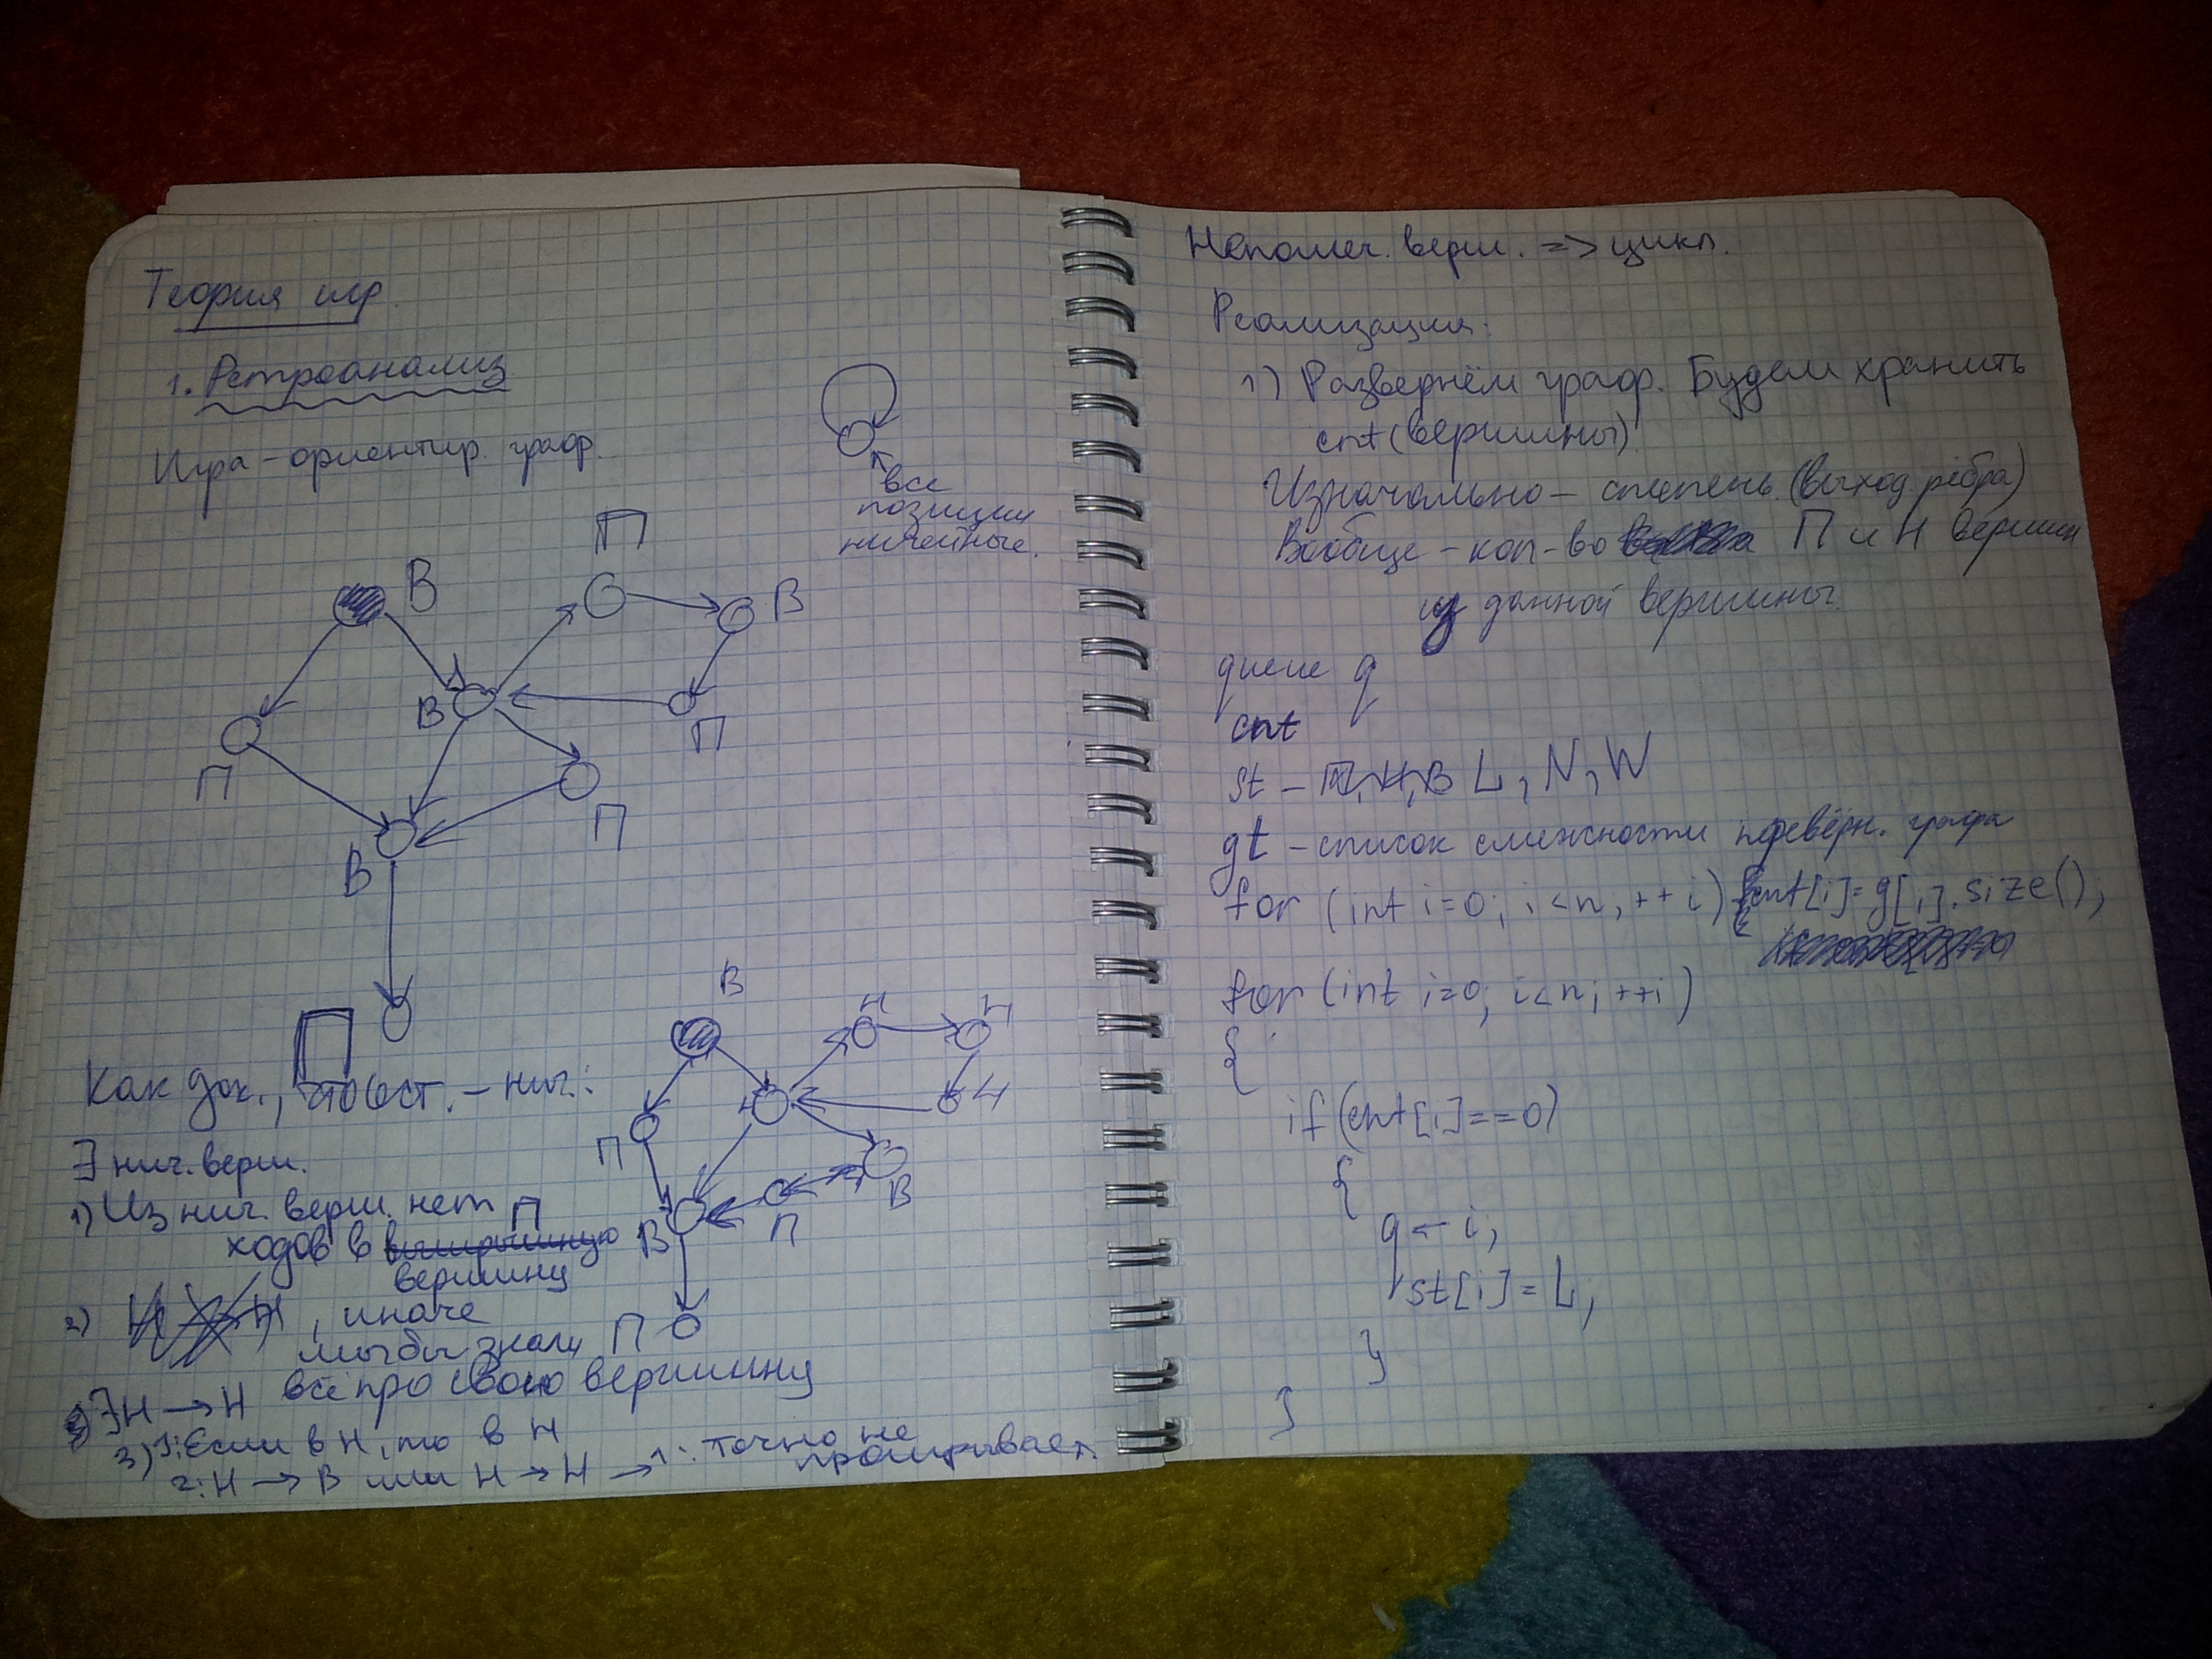 Теория игр.
1. Ретроанализ
Игра – ориентир. граф.
все
позиции
ничейные.
В
П
В
В
П
П
П
В
П
Как док., что ост. – нич.:
∃ нич. верш.
1) Из нич. верш. нет
ходов в П
вершину
2) , иначе
мы бы знали
всё про свою вершину
∃ Н → Н
3) 1: Если в Н, то в Н
2: Н → В или Н → Н → 1: точно не
проигрывает.
В
Н
Н
Н
Н
П
В
П
В
П
Непомеч. верш. => цикл.
Реализация:
1) Развернём граф. Будем хранить
cnt(вершины)
Изначально – степень (выход. рёбра)
Вообще – кол-во П и Н вершин
из данной вершины.
queue q
cnt
st – П, Н, В L, N, W
gt – список смежности перевёрн. графа
for (int i=0; i<n; ++i) cnt[i]=g[i].size();
for (int i=0; i<n; ++i)
{
if(cnt[i]==0)
{
q ← i;
st[i]=L;
}
}